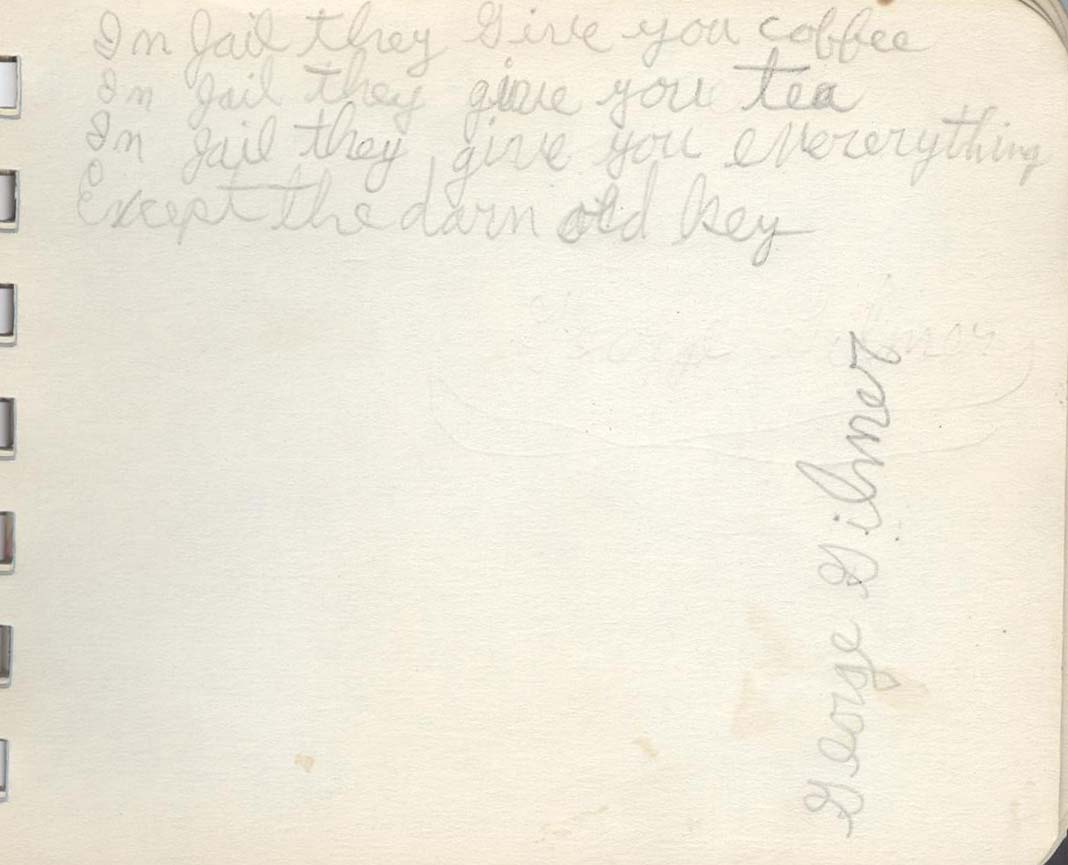 In Jail they Give you coffee
In Jail they give you tea
In Jail they give you evererything
Except the darn old key
George Gilmer